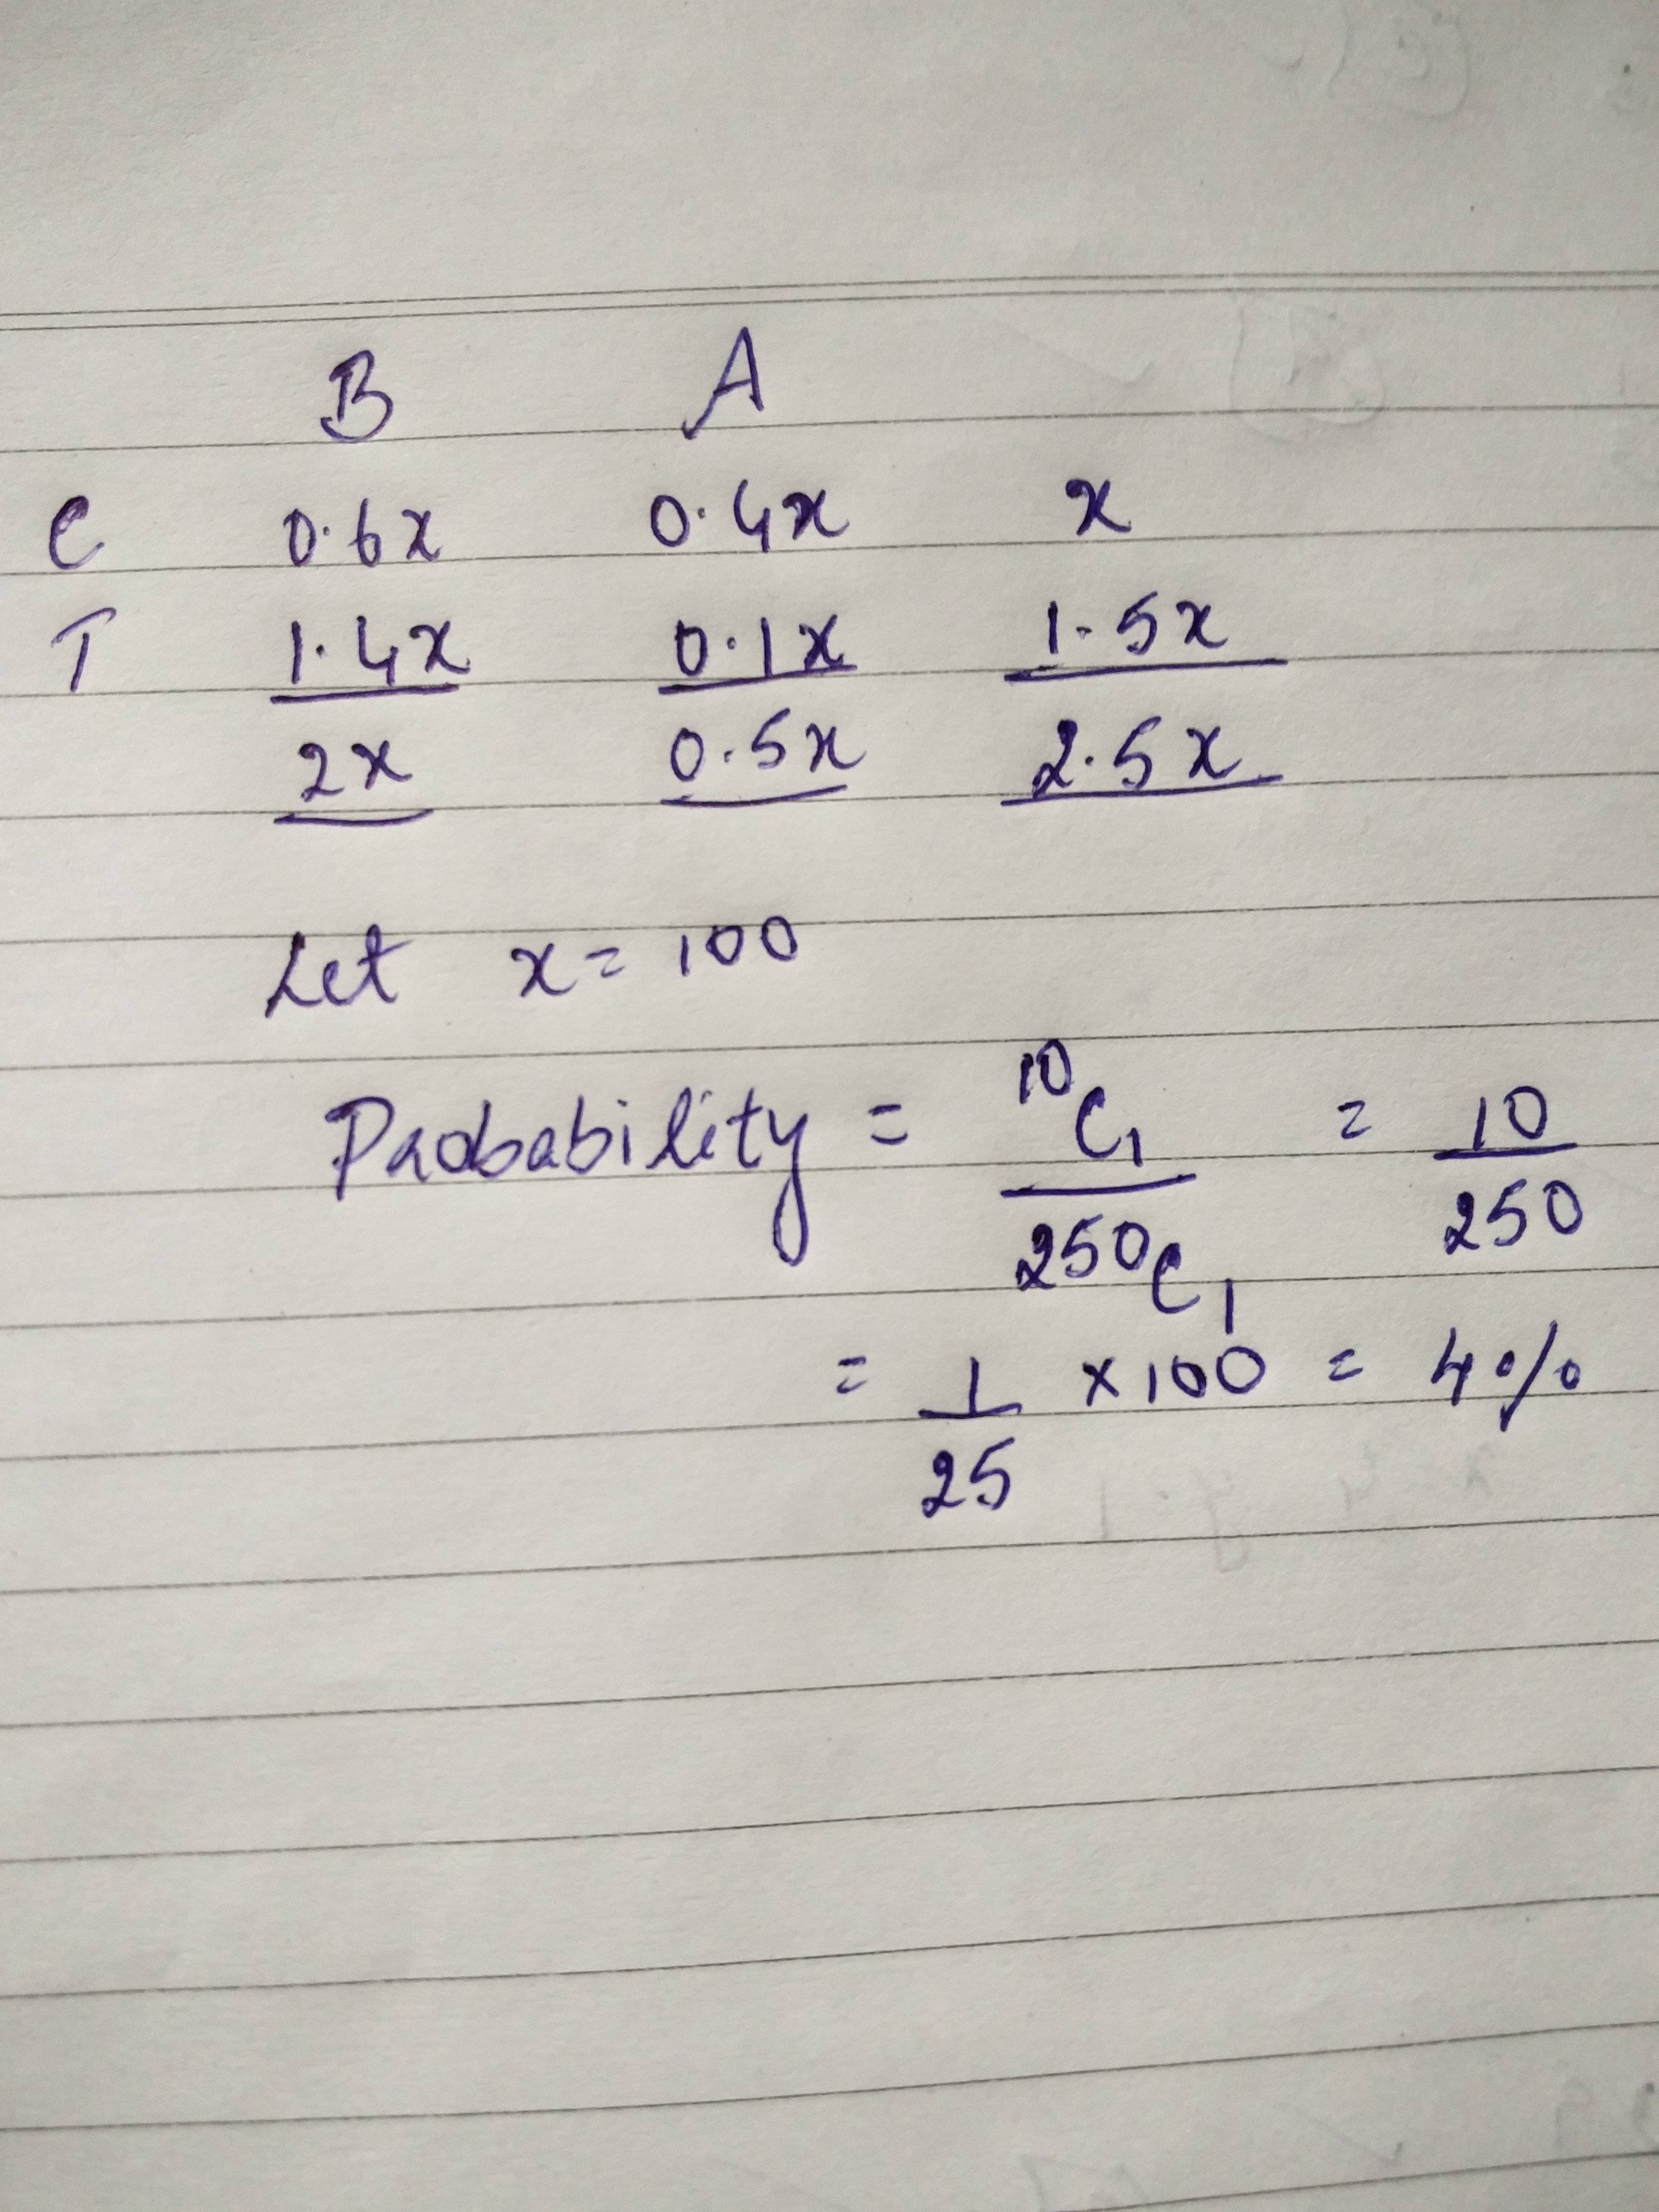 B A
C 0.6x 0.4x x
T 1.4x 0.1x 1.5x
2x 0.5x 2.5x
Let x = 100
Probability = ¹⁰C₁ / 250C₁ = 10 / 250
= 1/25 × 100 = 4%